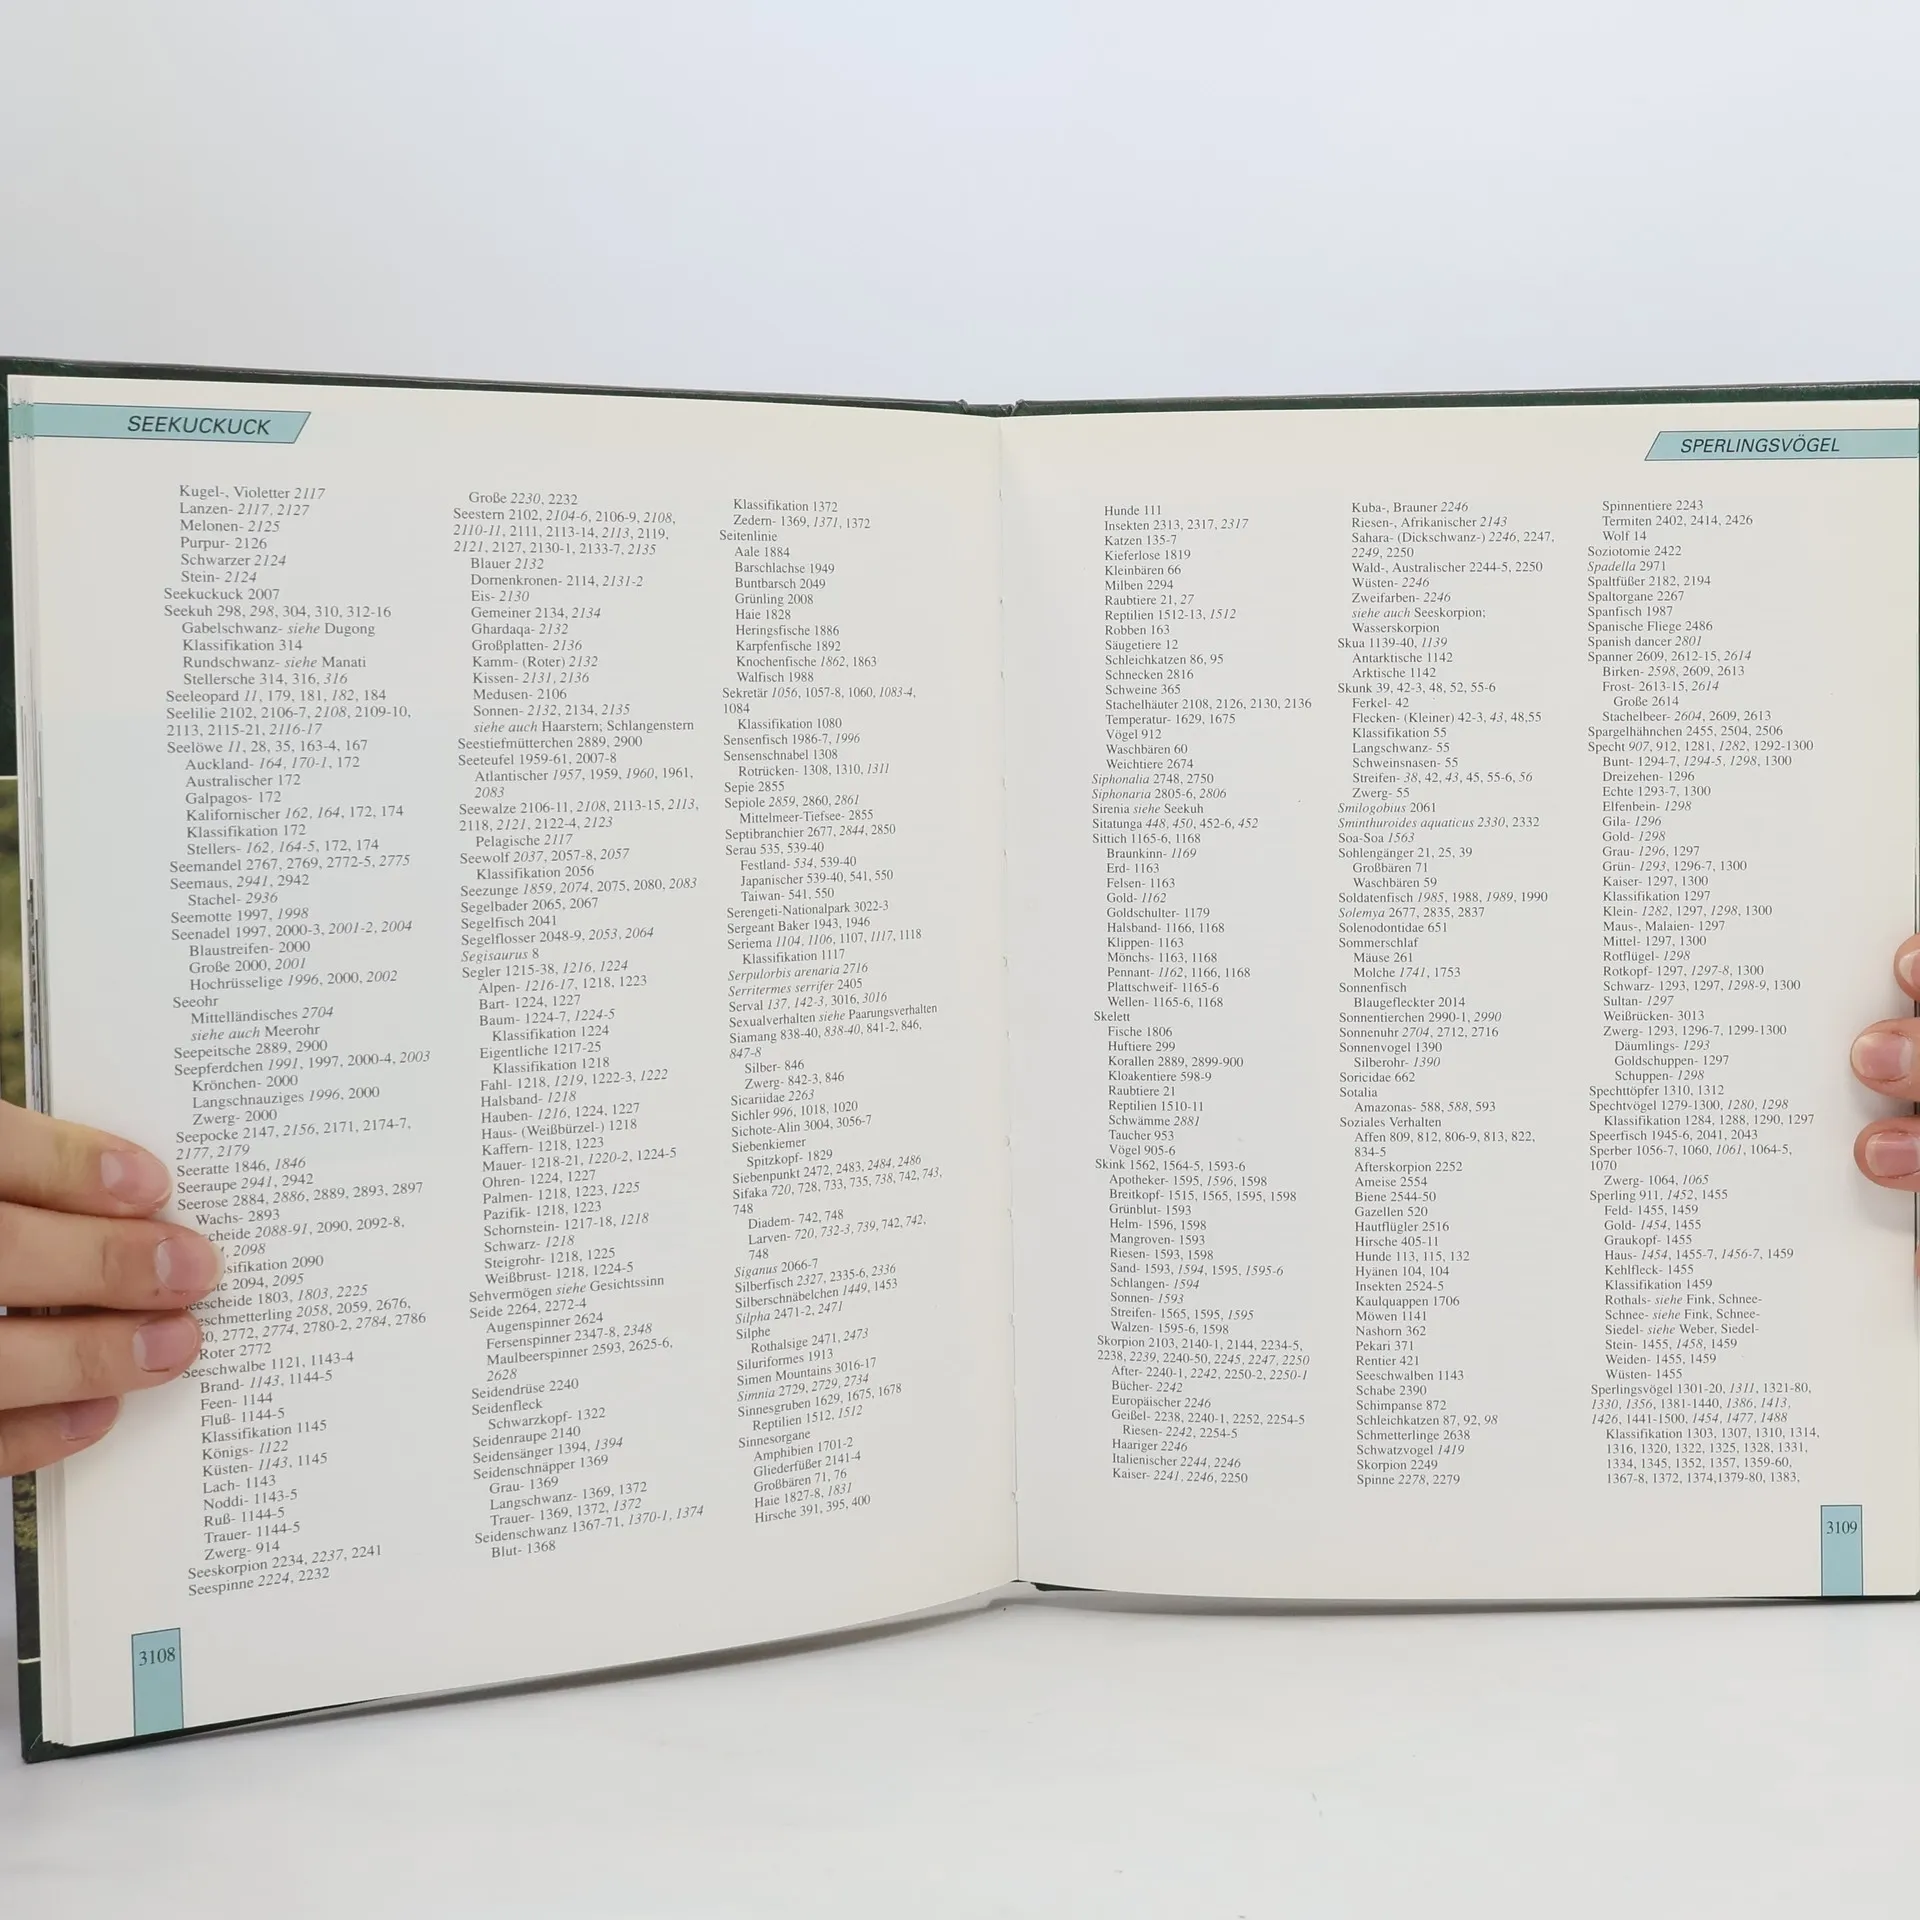 SEEKUCKUCK
Kugel-, Violetter 2117
Lanzen- 2117, 2127
Melonen- 2125
Purpur- 2126
Schwarzer 2124
Stein- 2124
Seekuckuck 2007
Seekuh 298, 298, 304, 310, 312-16
Gabelschwanz- siehe Dugong
Klassifikation 314
Rundschwanz- siehe Manati
Stellersche 314, 316, 316
Seeleopard 11, 179, 181, 182, 184
Seelilie 2102, 2106-7, 2108, 2109-10,
2113, 2115-21, 2116-17
Seelöwe 11, 28, 35, 163-4, 167
Auckland- 164, 170-1, 172
Australischer 172
Galpagos- 172
Kalifornischer 162, 164, 172, 174
Klassifikation 172
Stellers- 162, 164-5, 172, 174
Seemandel 2767, 2769, 2772-5, 2775
Seemaus, 2941, 2942
Stachel- 2936
Seemotte 1997, 1998
Seenadel 1997, 2000-3, 2001-2, 2004
Blaustreifen- 2000
Große 2000, 2001
Hochrüsselige 1996, 2000, 2002
Seeohr
Mittelländisches 2704
siehe auch Meerohr
Seepeitsche 2889, 2900
Seepferdchen 1991, 1997, 2000-4, 2003
Krönchen- 2000
Langschnauziges 1996, 2000
Zwerg- 2000
Seepocke 2147, 2156, 2171, 2174-7,
2177, 2179
Seeratte 1846, 1846
Seeraupe 2941, 2942
Seerose 2884, 2886, 2889, 2893, 2897
Wachs- 2893
cheide 2088-91, 2090, 2092-8,
, 2098
sifikation 2090
te 2094, 2095
eescheide 1803, 1803, 2225
eschmetterling 2058, 2059, 2676,
80, 2772, 2774, 2780-2, 2784, 2786
Roter 2772
Seeschwalbe 1121, 1143-4
Brand- 1143, 1144-5
Feen- 1144
Fluß- 1144-5
Klassifikation 1145
Königs- 1122
Küsten- 1143, 1145
Lach- 1143
Noddi- 1143-5
Ruß- 1144-5
Trauer- 1144-5
Zwerg- 914
Seeskorpion 2234, 2237, 2241
Seespinne 2224, 2232
Große 2230, 2232
Seestern 2102, 2104-6, 2106-9, 2108,
2110-11, 2111, 2113-14, 2113, 2119,
2121, 2127, 2130-1, 2133-7, 2135
Blauer 2132
Dornenkronen- 2114, 2131-2
Eis- 2130
Gemeiner 2134, 2134
Ghardaqa- 2132
Großplatten- 2136
Kamm- (Roter) 2132
Kissen- 2131, 2136
Medusen- 2106
Sonnen- 2132, 2134, 2135
siehe auch Haarstern; Schlangenstern
Seestiefmütterchen 2889, 2900
Seeteufel 1959-61, 2007-8
Atlantischer 1957, 1959, 1960, 1961,
2083
Seewalze 2106-11, 2108, 2113-15, 2113,
2118, 2121, 2122-4, 2123
Pelagische 2117
Seewolf 2037, 2057-8, 2057
Klassifikation 2056
Seezunge 1859, 2074, 2075, 2080, 2083
Segelbader 2065, 2067
Segelfisch 2041
Segelflosser 2048-9, 2053, 2064
Segisaurus 8
Segler 1215-38, 1216, 1224
Alpen- 1216-17, 1218, 1223
Bart- 1224, 1227
Baum- 1224-7, 1224-5
Klassifikation 1224
Eigentliche 1217-25
Klassifikation 1218
Fahl- 1218, 1219, 1222-3, 1222
Halsband- 1218
Hauben- 1216, 1224, 1227
Haus- (Weißbürzel-) 1218
Kaffern- 1218, 1223
Mauer- 1218-21, 1220-2, 1224-5
Ohren- 1224, 1227
Palmen- 1218, 1223, 1225
Pazifik- 1218, 1223
Schornstein- 1217-18, 1218
Schwarz- 1218
Steigrohr- 1218, 1225
Weißbrust- 1218, 1224-5
Sehvermögen siehe Gesichtssinn
Seide 2264, 2272-4
Augenspinner 2624
Fersenspinner 2347-8, 2348
Maulbeerspinner 2593, 2625-6,
2628
Seidendrüse 2240
Seidenfleck
Schwarzkopf- 1322
Seidenraupe 2140
Seidensänger 1394, 1394
Seidenschnäpper 1369
Grau- 1369
Langschwanz- 1369, 1372
Trauer- 1369, 1372, 1372
Seidenschwanz 1367-71, 1370-1, 1374
Blut- 1368
Klassifikation 1372
Zedern- 1369, 1371, 1372
Seitenlinie
Aale 1884
Barschlachse 1949
Buntbarsch 2049
Grünling 2008
Haie 1828
Heringsfische 1886
Karpfenfische 1892
Knochenfische 1862, 1863
Walfisch 1988
Sekretär 1056, 1057-8, 1060, 1083-4,
1084
Klassifikation 1080
Sensenfisch 1986-7, 1996
Sensenschnabel 1308
Rotrücken- 1308, 1310, 1311
Sepie 2855
Sepiole 2859, 2860, 2861
Mittelmeer-Tiefsee- 2855
Septibranchier 2677, 2844, 2850
Serau 535, 539-40
Festland- 534, 539-40
Japanischer 539-40, 541, 550
Taiwan- 541, 550
Serengeti-Nationalpark 3022-3
Sergeant Baker 1943, 1946
Seriema 1104, 1106, 1107, 1117, 1118
Klassifikation 1117
Serpulorbis arenaria 2716
Serritermes serrifer 2405
Serval 137, 142-3, 3016, 3016
Sexualverhalten siehe Paarungsverhalten
Siamang 838-40, 838-40, 841-2, 846,
847-8
Silber- 846
Zwerg- 842-3, 846
Sicariidae 2263
Sichler 996, 1018, 1020
Sichote-Alin 3004, 3056-7
Siebenkiemer
Spitzkopf- 1829
Siebenpunkt 2472, 2483, 2484, 2486
Sifaka 720, 728, 733, 735, 738, 742, 743,
748
Diadem- 742, 748
Larven- 720, 732-3, 739, 742, 742,
748
Siganus 2066-7
Silberfisch 2327, 2335-6, 2336
Silberschnäbelchen 1449, 1453
Silpha 2471-2, 2471
Silphe
Rothalsige 2471, 2473
Siluriformes 1913
Simen Mountains 3016-17
Simnia 2729, 2729, 2734
Sinnesgruben 1629, 1675, 1678
Reptilien 1512, 1512
Sinnesorgane
Amphibien 1701-2
Gliederfüßer 2141-4
Großbären 71, 76
Haie 1827-8, 1831
Hirsche 391, 395, 400
3108
SPERLINGSVÖGEL
Hunde 111
Insekten 2313, 2317, 2317
Katzen 135-7
Kieferlose 1819
Kleinbären 66
Milben 2294
Raubtiere 21, 27
Reptilien 1512-13, 1512
Robben 163
Säugetiere 12
Schleichkatzen 86, 95
Schnecken 2816
Schweine 365
Stachelhäuter 2108, 2126, 2130, 2136
Temperatur- 1629, 1675
Vögel 912
Waschbären 60
Weichtiere 2674
Siphonalia 2748, 2750
Siphonaria 2805-6, 2806
Sirenia siehe Seekuh
Sitatunga 448, 450, 452-6, 452
Sittich 1165-6, 1168
Braunkinn- 1169
Erd- 1163
Felsen- 1163
Gold- 1162
Goldschulter- 1179
Halsband- 1166, 1168
Klippen- 1163
Mönchs- 1163, 1168
Pennant- 1162, 1166, 1168
Plattschweif- 1165-6
Wellen- 1165-6, 1168
Skelett
Fische 1806
Huftiere 299
Korallen 2889, 2899-900
Kloakentiere 598-9
Raubtiere 21
Reptilien 1510-11
Schwämme 2881
Taucher 953
Vögel 905-6
Skink 1562, 1564-5, 1593-6
Apotheker- 1595, 1596, 1598
Breitkopf- 1515, 1565, 1595, 1598
Grünblut- 1593
Helm- 1596, 1598
Mangroven- 1593
Riesen- 1593, 1598
Sand- 1593, 1594, 1595, 1595-6
Schlangen- 1594
Sonnen- 1593
Streifen- 1565, 1595, 1595
Walzen- 1595-6, 1598
Skorpion 2103, 2140-1, 2144, 2234-5,
2238, 2239, 2240-50, 2245, 2247, 2250
After- 2240-1, 2242, 2250-2, 2250-1
Bücher- 2242
Europäischer 2246
Geißel- 2238, 2240-1, 2252, 2254-5
Riesen- 2242, 2254-5
Haariger 2246
Italienischer 2244, 2246
Kaiser- 2241, 2246, 2250
Kuba-, Brauner 2246
Riesen-, Afrikanischer 2143
Sahara- (Dickschwanz-) 2246, 2247,
2249, 2250
Wald-, Australischer 2244-5, 2250
Wüsten- 2246
Zweifarben- 2246
siehe auch Seeskorpion;
Wasserskorpion
Skua 1139-40, 1139
Antarktische 1142
Arktische 1142
Skunk 39, 42-3, 48, 52, 55-6
Ferkel- 42
Flecken- (Kleiner) 42-3, 43, 48,55
Klassifikation 55
Langschwanz- 55
Schweinsnasen- 55
Streifen- 38, 42, 43, 45, 55-6, 56
Zwerg- 55
Smilogobius 2061
Sminthuroides aquaticus 2330, 2332
Soa-Soa 1563
Sohlengänger 21, 25, 39
Großbären 71
Waschbären 59
Soldatenfisch 1985, 1988, 1989, 1990
Solemya 2677, 2835, 2837
Solenodontidae 651
Sommerschlaf
Mäuse 261
Molche 1741, 1753
Sonnenfisch
Blaugefleckter 2014
Sonnentierchen 2990-1, 2990
Sonnenuhr 2704, 2712, 2716
Sonnenvogel 1390
Silberohr- 1390
Soricidae 662
Sotalia
Amazonas- 588, 588, 593
Soziales Verhalten
Affen 809, 812, 806-9, 813, 822,
834-5
Afterskorpion 2252
Ameise 2554
Biene 2544-50
Gazellen 520
Hautflügler 2516
Hirsche 405-11
Hunde 113, 115, 132
Hyänen 104, 104
Insekten 2524-5
Kaulquappen 1706
Möwen 1141
Nashorn 362
Pekari 371
Rentier 421
Seeschwalben 1143
Schabe 2390
Schimpanse 872
Schleichkatzen 87, 92, 98
Schmetterlinge 2638
Schwatzvogel 1419
Skorpion 2249
Spinne 2278, 2279
Spinnentiere 2243
Termiten 2402, 2414, 2426
Wolf 14
Soziotomie 2422
Spadella 2971
Spaltfüßer 2182, 2194
Spaltorgane 2267
Spanfisch 1987
Spanische Fliege 2486
Spanish dancer 2801
Spanner 2609, 2612-15, 2614
Birken- 2598, 2609, 2613
Frost- 2613-15, 2614
Große 2614
Stachelbeer- 2604, 2609, 2613
Spargelhähnchen 2455, 2504, 2506
Specht 907, 912, 1281, 1282, 1292-1300
Bunt- 1294-7, 1294-5, 1298, 1300
Dreizehen- 1296
Echte 1293-7, 1300
Elfenbein- 1298
Gila- 1296
Gold- 1298
Grau- 1296, 1297
Grün- 1293, 1296-7, 1300
Kaiser- 1297, 1300
Klassifikation 1297
Klein- 1282, 1297, 1298, 1300
Maus-, Malaien- 1297
Mittel- 1297, 1300
Rotflügel- 1298
Rotkopf- 1297, 1297-8, 1300
Schwarz- 1293, 1297, 1298-9, 1300
Sultan- 1297
Weißrücken- 3013
Zwerg- 1293, 1296-7, 1299-1300
Däumlings- 1293
Goldschuppen- 1297
Schuppen- 1298
Spechttöpfer 1310, 1312
Spechtvögel 1279-1300, 1280, 1298
Klassifikation 1284, 1288, 1290, 1297
Speerfisch 1945-6, 2041, 2043
Sperber 1056-7, 1060, 1061, 1064-5,
1070
Zwerg- 1064, 1065
Sperling 911, 1452, 1455
Feld- 1455, 1459
Gold- 1454, 1455
Graukopf- 1455
Haus- 1454, 1455-7, 1456-7, 1459
Kehlfleck- 1455
Klassifikation 1459
Rothals- siehe Fink, Schnee-
Schnee- siehe Fink, Schnee-
Siedel- siehe Weber, Siedel-
Stein- 1455, 1458, 1459
Weiden- 1455, 1459
Wüsten- 1455
Sperlingsvögel 1301-20, 1311, 1321-80,
1330, 1356, 1381-1440, 1386, 1413,
1426, 1441-1500, 1454, 1477, 1488
Klassifikation 1303, 1307, 1310, 1314,
1316, 1320, 1322, 1325, 1328, 1331,
1334, 1345, 1352, 1357, 1359-60,
1367-8, 1372, 1374,1379-80, 1383,
3109